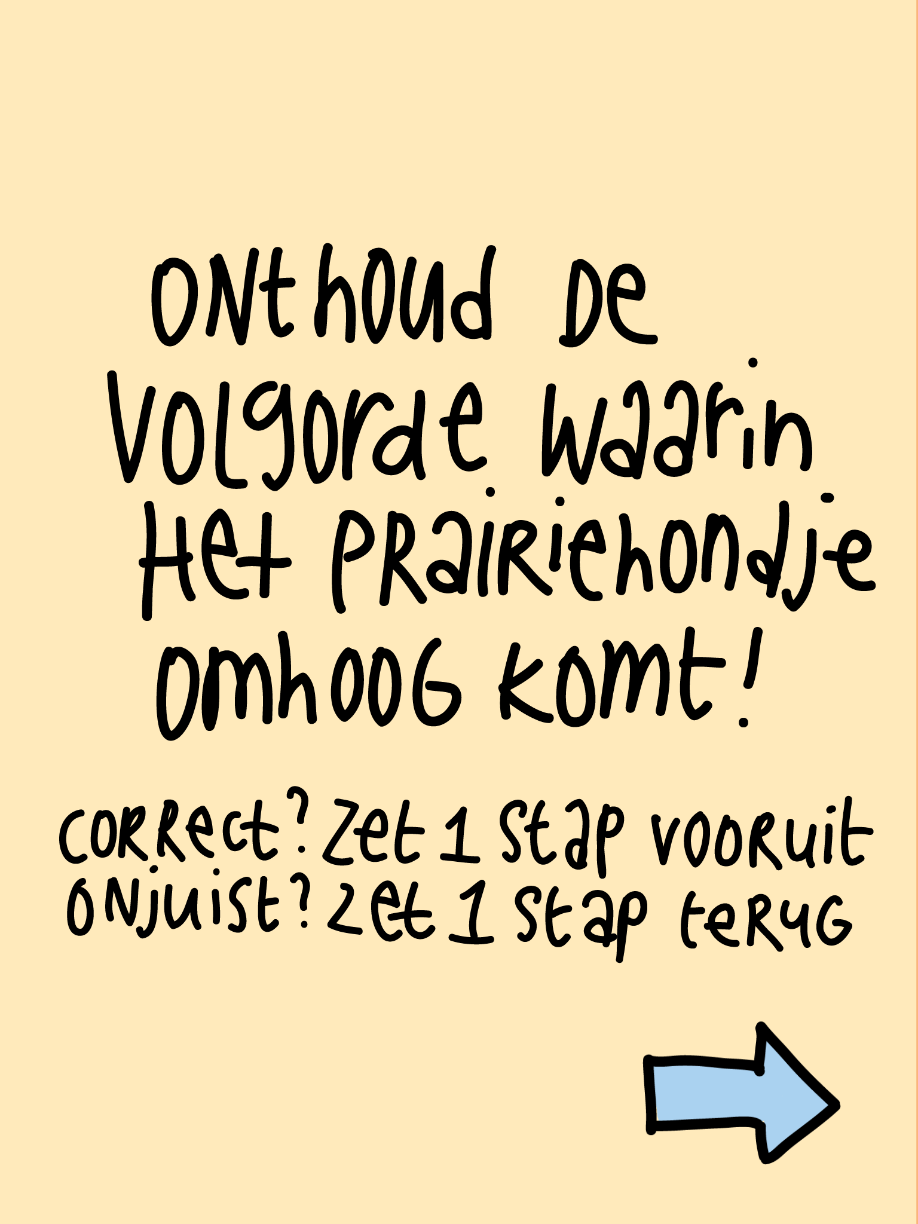 ONthoud De
Volgorde waarin
Het PRaiRiehondje
OmhooG komt!
CORRect? Zet 1 Stap vooRuit
ONjuist? Zet 1 Stap teRuG